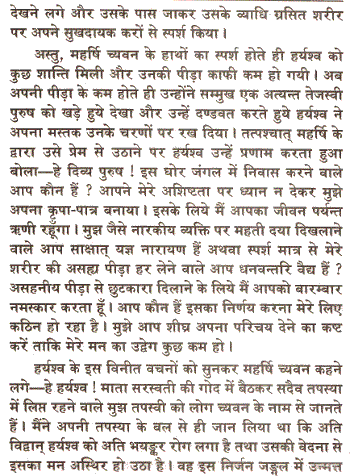 देखने लगे और उसके पास जाकर उसके व्याधि ग्रसित शरीर
पर अपने सुखदायक करों से स्पर्श किया।
अस्तु, महर्षि च्यवन के हाथों का स्पर्श होते ही हर्यश्व को
कुछ शान्ति मिली और उनकी पीड़ा काफी कम हो गयी। अब
अपनी पीड़ा के कम होते ही उन्होंने सम्मुख एक अत्यन्त तेजस्वी
पुरुष को खड़े हुये देखा और उन्हें दण्डवत करते हुये हर्यश्व ने
अपना मस्तक उनके चरणों पर रख दिया। तत्पश्चात् महर्षि के
द्वारा उसे प्रेम से उठाने पर हर्यश्व उन्हें प्रणाम करता हुआ
बोला—हे दिव्य पुरुष ! इस घोर जंगल में निवास करने वाले
आप कौन हैं ? आपने मेरे अशिष्टता पर ध्यान न देकर मुझे
अपना कृपा-पात्र बनाया। इसके लिये मैं आपका जीवन पर्यन्त
ऋणी रहूँगा। मुझ जैसे नारकीय व्यक्ति पर महती दया दिखलाने
वाले आप साक्षात् यज्ञ नारायण हैं अथवा स्पर्श मात्र से मेरे
शरीर की असह्य पीड़ा हर लेने वाले आप धनवन्तरि वैद्य हैं ?
असहनीय पीड़ा से छुटकारा दिलाने के लिये मैं आपको बारम्बार
नमस्कार करता हूँ। आप कौन हैं इसका निर्णय करना मेरे लिए
कठिन हो रहा है। मुझे आप शीघ्र अपना परिचय देने का कष्ट
करें ताकि मेरे मन का उद्वेग कुछ कम हो।
हर्यश्व के इस विनीत वचनों को सुनकर महर्षि च्यवन कहने
लगे—हे हर्यश्व ! माता सरस्वती की गोद में बैठकर सदैव तपस्या
में लिप्त रहने वाले मुझ तपस्वी को लोग च्यवन के नाम से जानते
हैं। मैंने अपनी तपस्या के बल से ही जान लिया था कि अति
विद्वान् हर्यश्व को अति भयङ्कर रोग लगा है तथा उसकी वेदना से
इसका मन अस्थिर हो उठा है। वह इस निर्जन जङ्गल में उन्मत्त